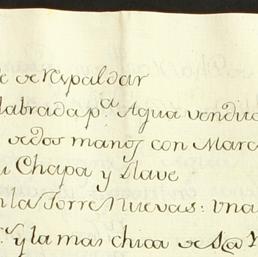 de respaldar
labrada p.a Agua vendita
de dos manos con Marc
u Chapa y Llave
n la Torre Nuevas: una
y la mas chica de